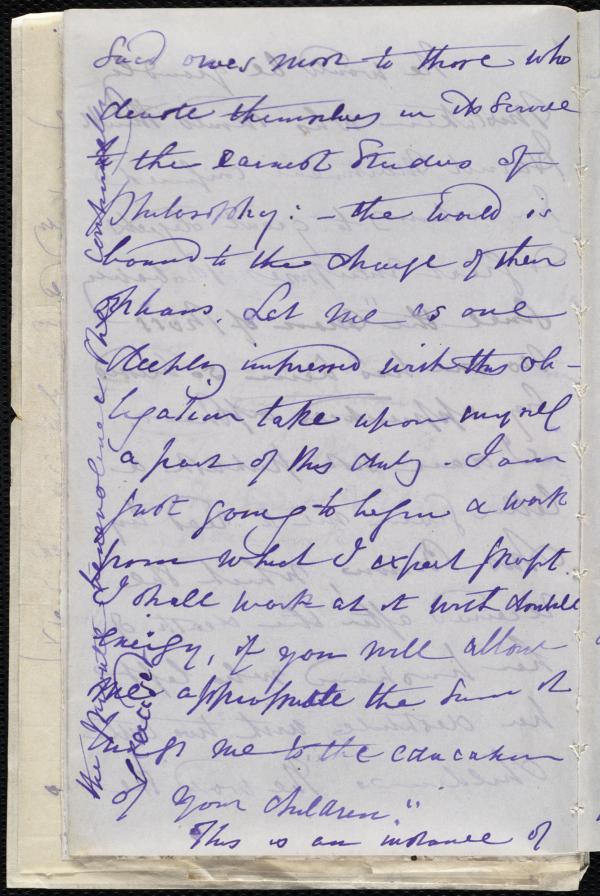 Said owes more to those who
devote themselves in its service
to the earnest Studies of
Philosophy: – the world is
bound to the charge of their
orphans. Let me as one
deeply impressed with this ob-
ligation take upon myself
a part of this duty. I am
just going to begin a work
from which I expect profit.
I shall work at it with double
energy, if you will allow
me appropriate the sum it
brings me to the education
of your children."
This is an instance of
the private benevolence she continually
exercised